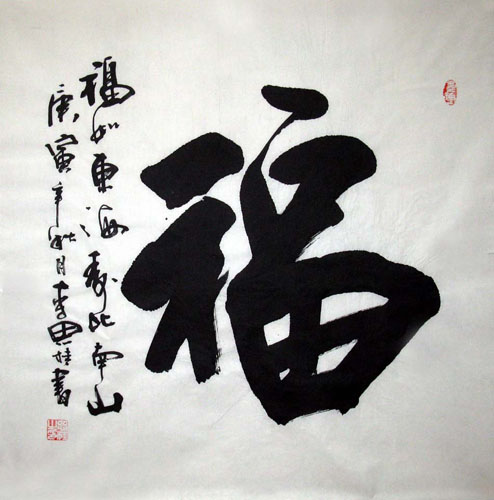 福
福如東海寿比南山
庚寅年秋月李書